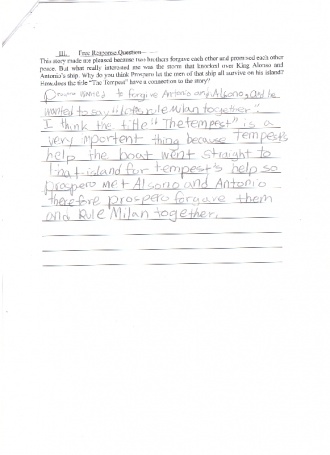 III. Free Response Question
This story made me pleased because two brothers forgave each other and promised each other
peace. But what really interested me was the storm that knocked over King Alonso and
Antonio's ship. Why do you think Prospero let the men of that ship all survive on his island?
How does the title "The Tempest" have a connection to the story?
to forgive Antonio and Alsono, and he
wanted to say "lets rule Milan together"
I think the title "The tempest" is a
very mportent thing because Tempests
help the boat went straight to
that island for tempest's help so
prospero met Alsono and Antonio
therefore prospero forgave them
and Rule Milan together.